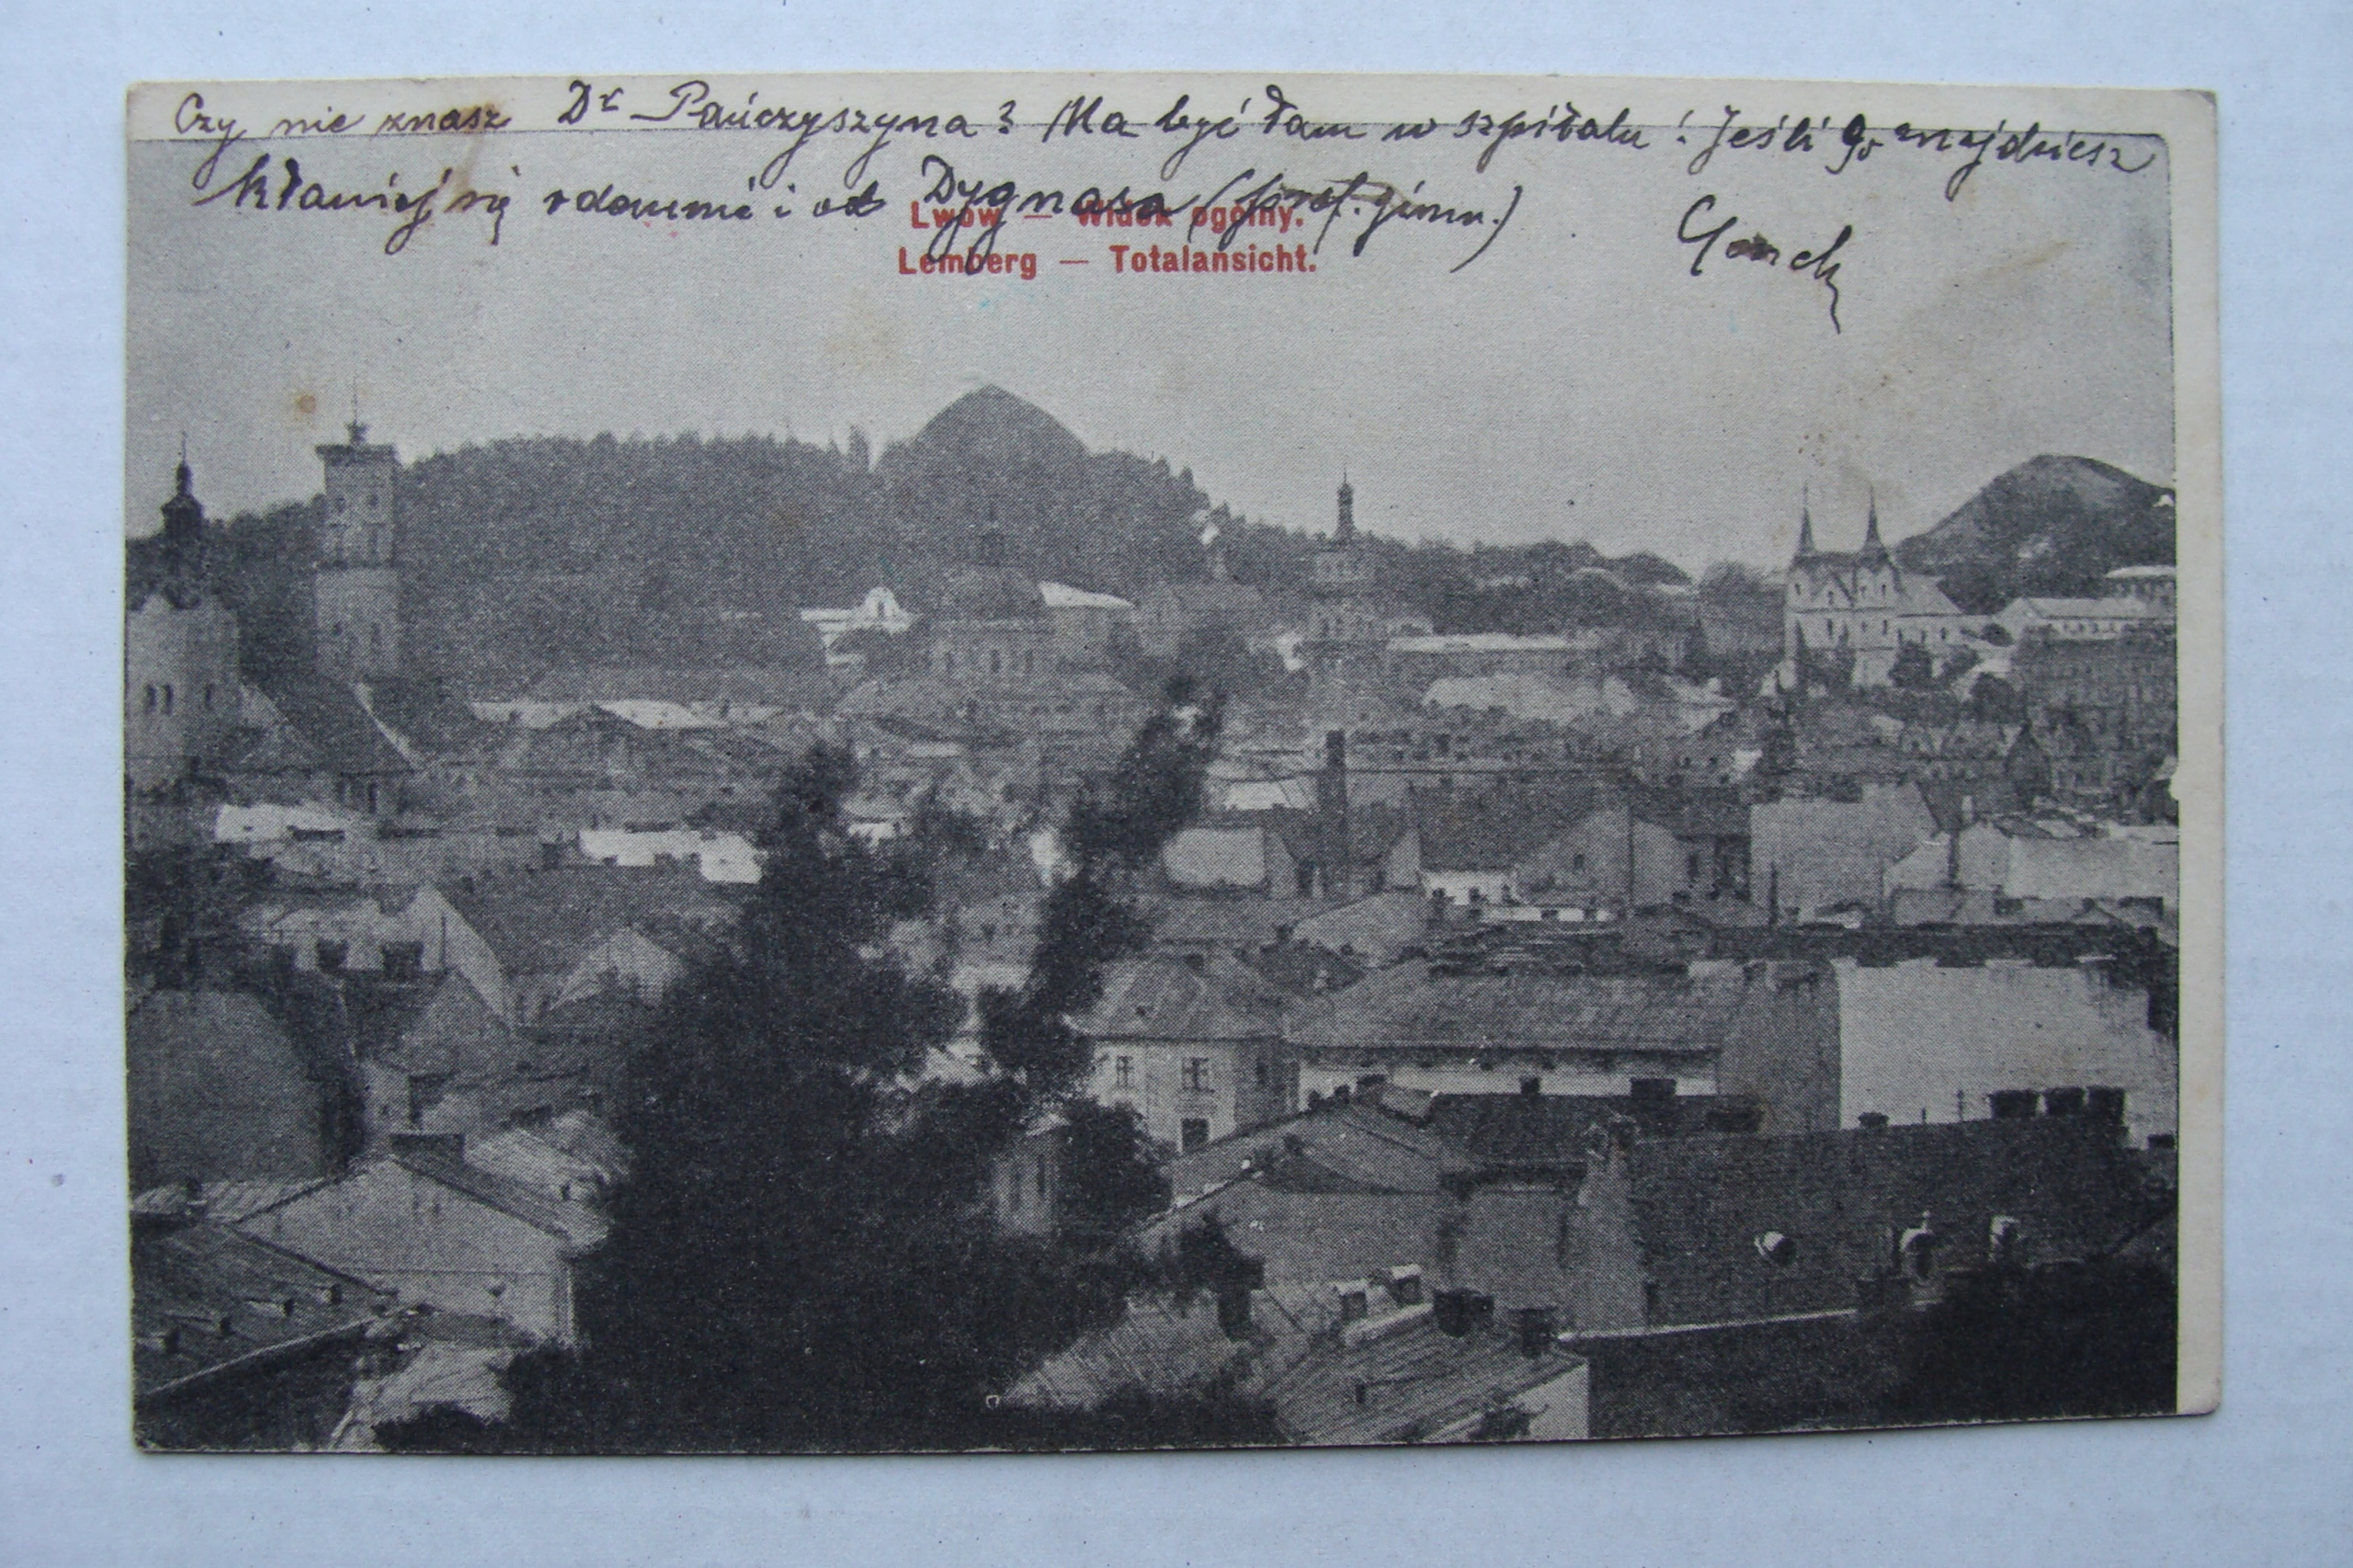 Czy nie znasz Dr Pańczyszyna? Ma być tam w szpitalu! Jeśli go znajdziesz
kłaniaj się odemnie i od Dygnasa (prof. gimn.)
Lwów — Widok ogólny.
Lemberg — Totalansicht.